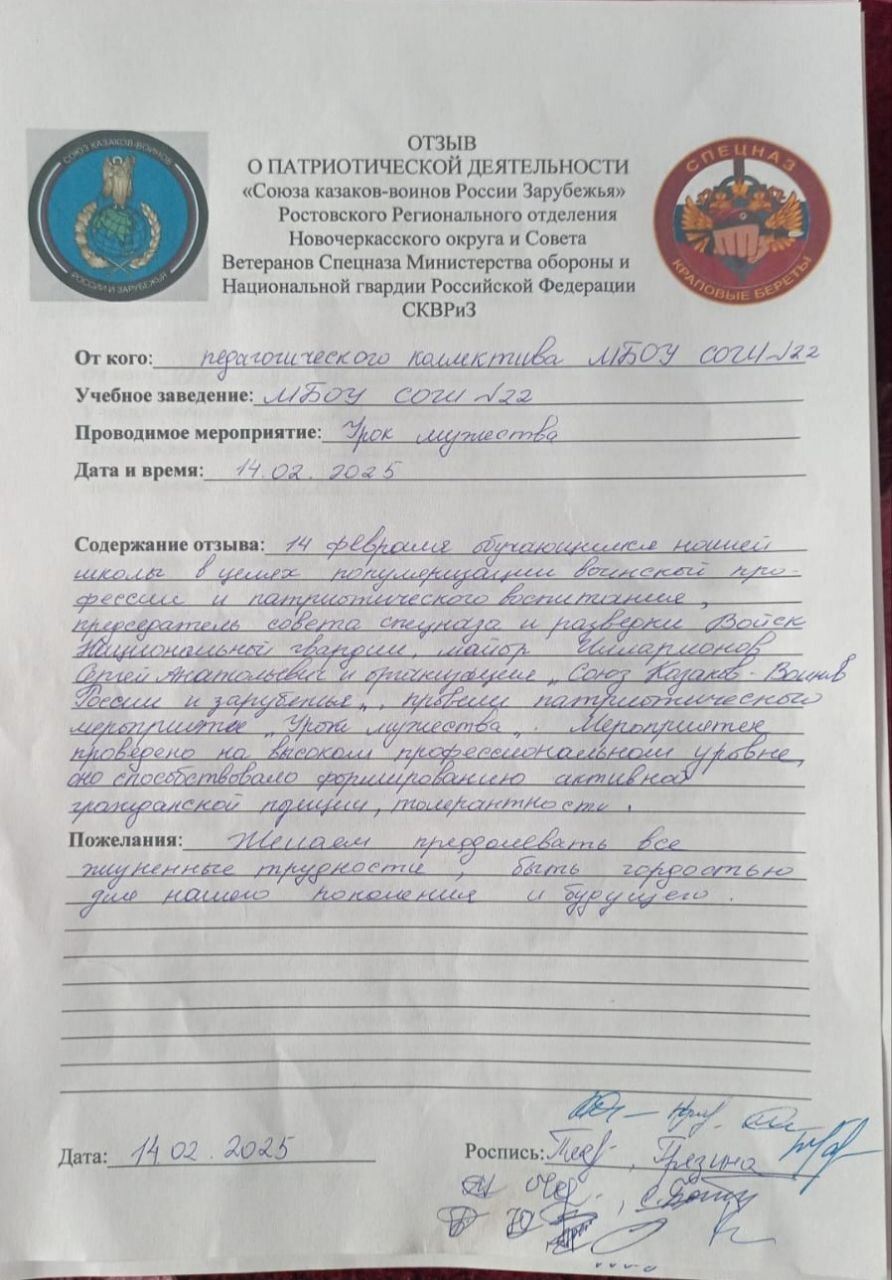 СОЮЗ КАЗАКОВ-ВОИНОВ
РОССИИ И ЗАРУБЕЖЬЯ
ОТЗЫВ
О ПАТРИОТИЧЕСКОЙ ДЕЯТЕЛЬНОСТИ
«Союза казаков-воинов России Зарубежья»
Ростовского Регионального отделения
Новочеркасского округа и Совета
Ветеранов Спецназа Министерства обороны и
Национальной гвардии Российской Федерации
СКВРиЗ
СПЕЦНАЗ
КРАПОВЫЕ БЕРЕТЫ
От кого: педагогического коллектива МБОУ СОШ №22
Учебное заведение: МБОУ СОШ №22
Проводимое мероприятие: Урок мужества
Дата и время: 14.02.2025
Содержание отзыва: 14 февраля обучающимся нашей
школы в целях популяризации воинской про-
фессии и патриотического воспитания,
председатель совета спецназа и разведки Войск
Национальной гвардии, майор Илларионов
Сергей Анатольевич и организация „Союз Казаков-Воинов
России и зарубежья„, провели патриотического
мероприятие „Урок мужества„. Мероприятие
проведено на высоком профессиональном уровне,
оно способствовало формированию активной
гражданской позиции, толерантности.
Пожелания: Желаем преодолевать все
жизненные трудности, быть гордостью
для нашего поколения и будущего.
Дата: 14.02.2025
Роспись: Грязина